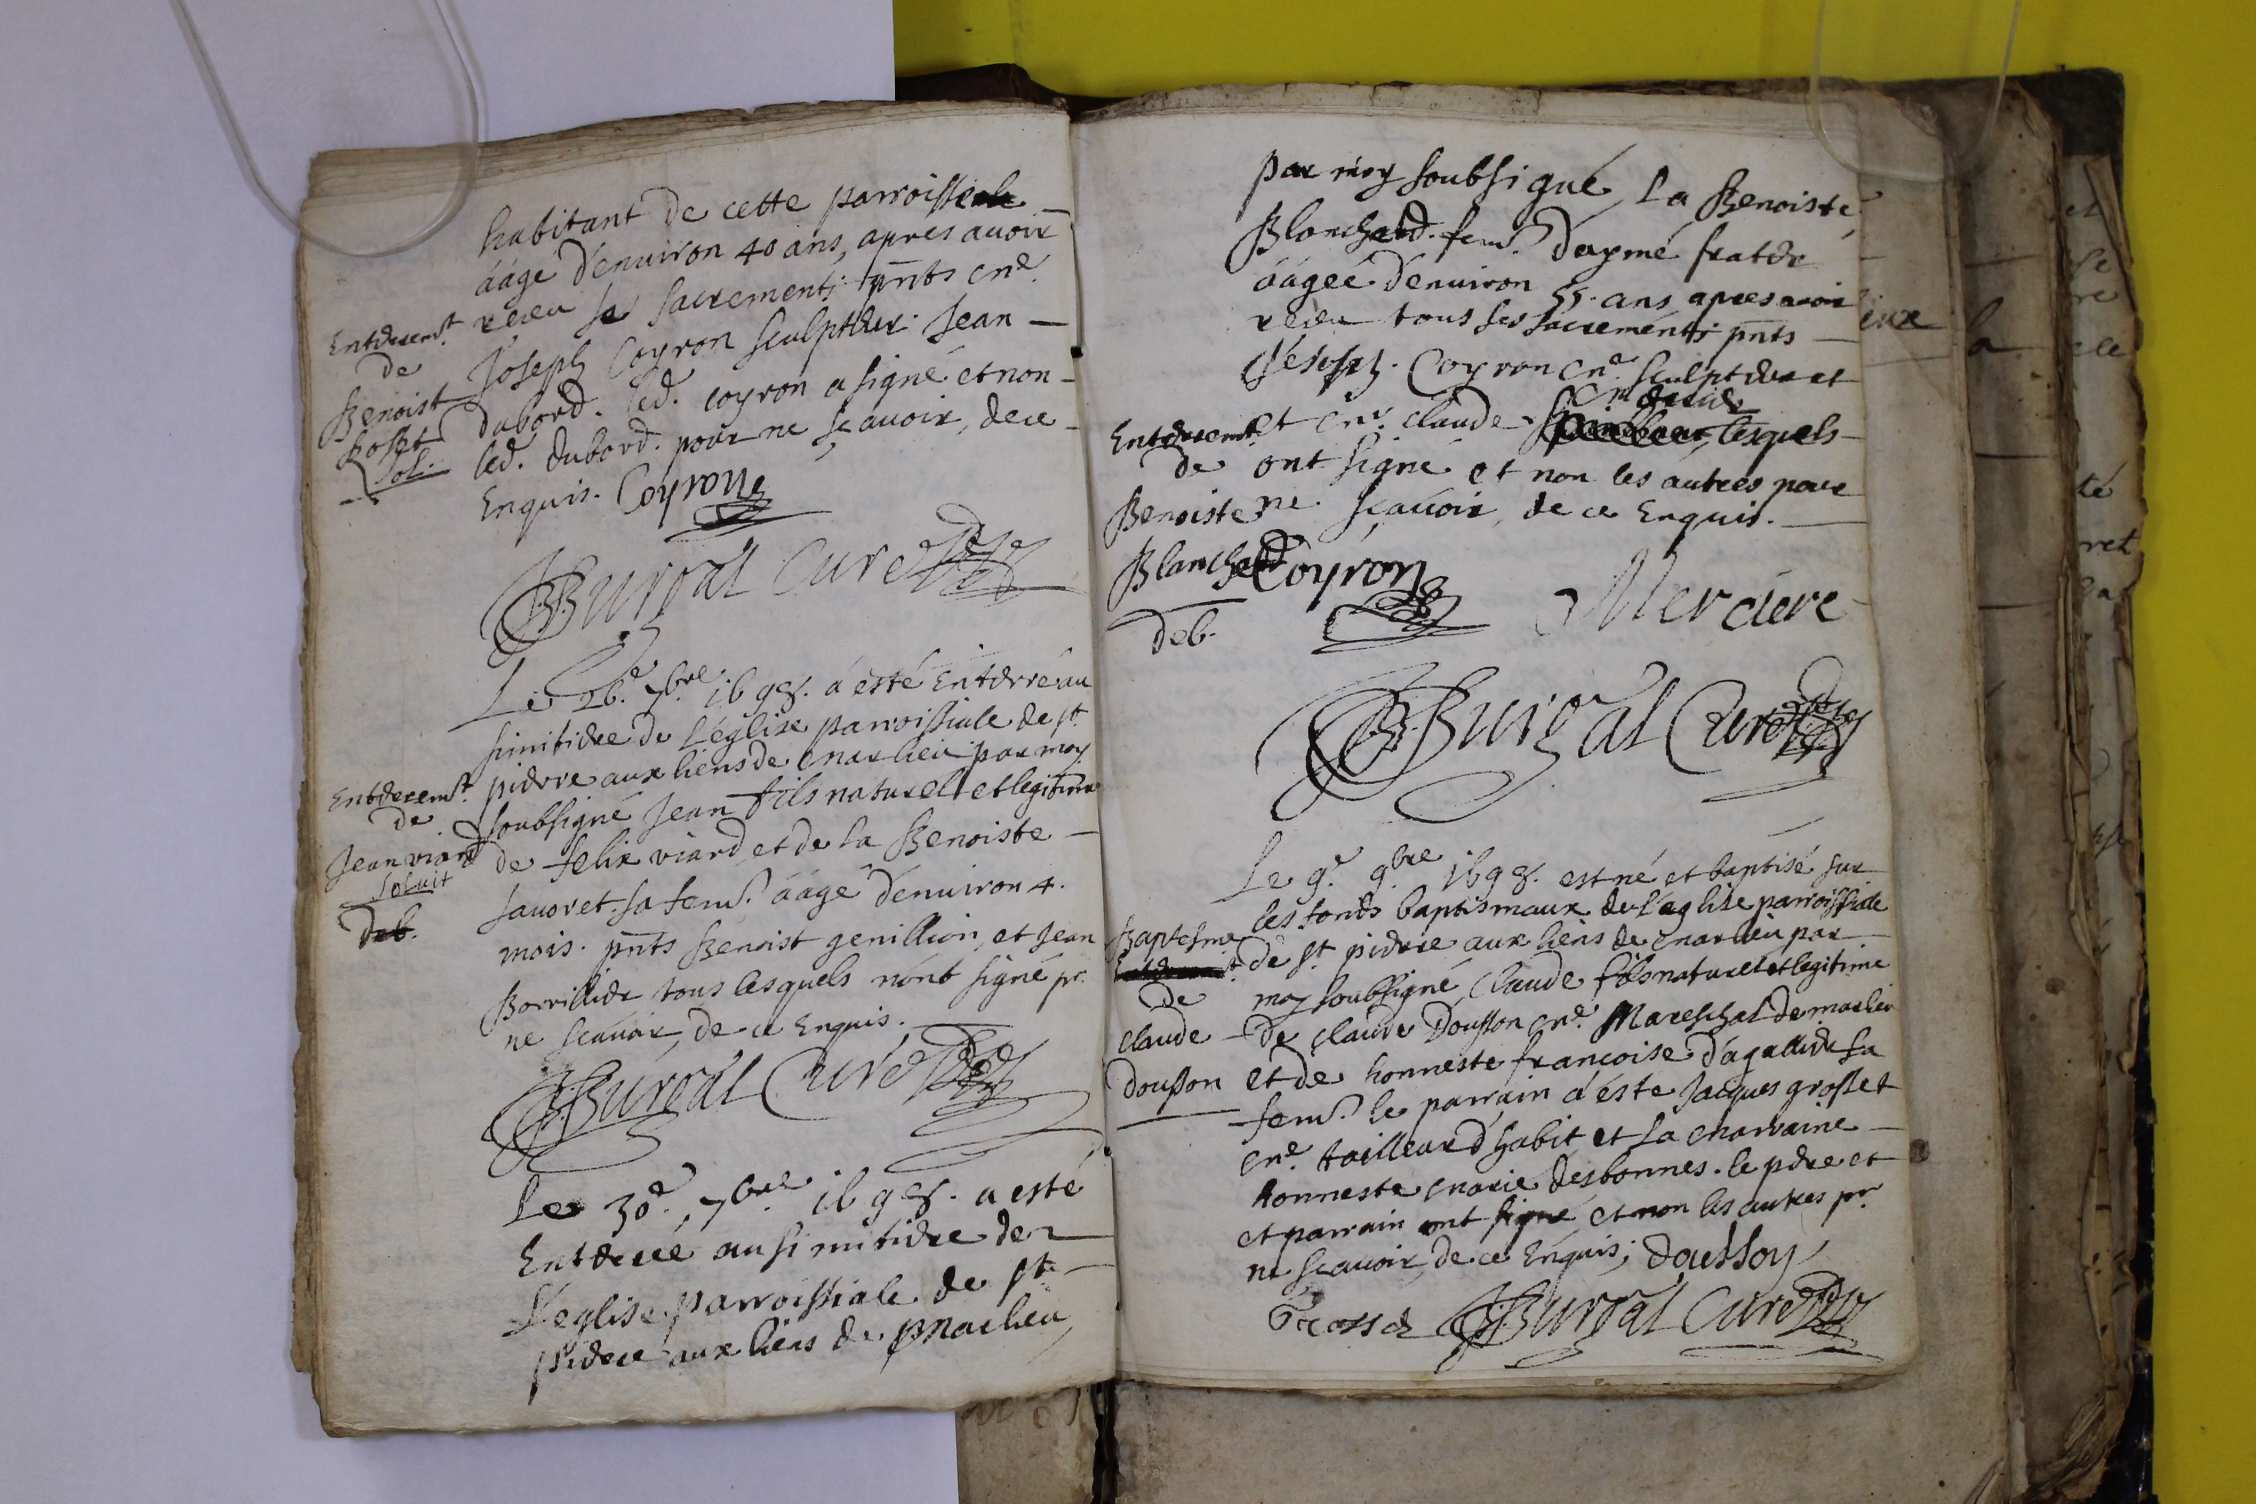 habitant de cette parroisse
áágé d'enuiron 40 ans, apres auoir
receu se sacrements pnts me
Joseph Coyron sculptheur Jean
dubord. led. coyron a signé et non
led. dubord. pour ne sçauoir, de ce
Enquis. Coyron
Enterremt
de
Benoist
sol.
BBurgat Curé
Le 26e 7bre 1698. á esté Enterré au
simitiere de L'église parroissiale de st
pierre aux liens de marlieu par moy
soubsigné Jean fils naturel et legitime
de felix viard et de la Benoiste
sauoret. sa fem. áágé d'enuiron 4.
mois. pnts Benoist genillion, et Jean
Borrillier tous lesquels n'ont signé pr
ne scauoir, de ce Enquis.
Enterremt
de
Jean viard
soluit
deb.
BBurgat Curé
Le 30e 7bre 1698. a esté
Enterré au simitiere de
L'eglise parroissiale de st
pierre aux liens de marlieu
par moy soubsigné, La Benoiste
Blanchard. fem. d'aymé frater
áágée d'enuiron 55. ans apres auoir
receu tous ses sacrements pnts
Joseph. Coyron me sculpteur et
et me claude lesquels
ont signé et non les autres pour
ne sçauoir, de ce Enquis.
Enterremt
de
Benoiste
Blanchard
deb.
Coyron Merciere
BBurgat Curé
Le 9e 9bre 1698. est né et baptisé sur
les fonds baptismaux de L'eglise parroissiale
de st pierre aux liens de marlieu par
moy soubsigné, Claude fils naturel et legitime
de claude Dousson me Mareschal de marlieu
et de honneste françoise d'agallier sa
fem. le parrain á esté Jacques grosset
me tailleur d'habit et la marraine
honneste marie desbonnes. le pere et
et parrain ont signé et non les autres pr
ne sçauoir, de ce Enquis; doussoy
Baptesme
de
claude
Dousson
BBurgat Curé